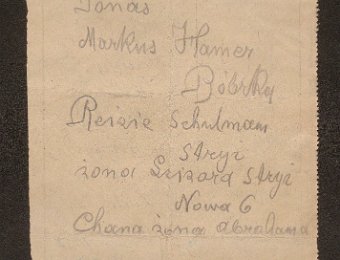 Jonas
Markus Hamer
Bóbrka
Reizie Schulman
Stryj
żona Lizara Stryj
Nowa 6
Chana żona Abrahama